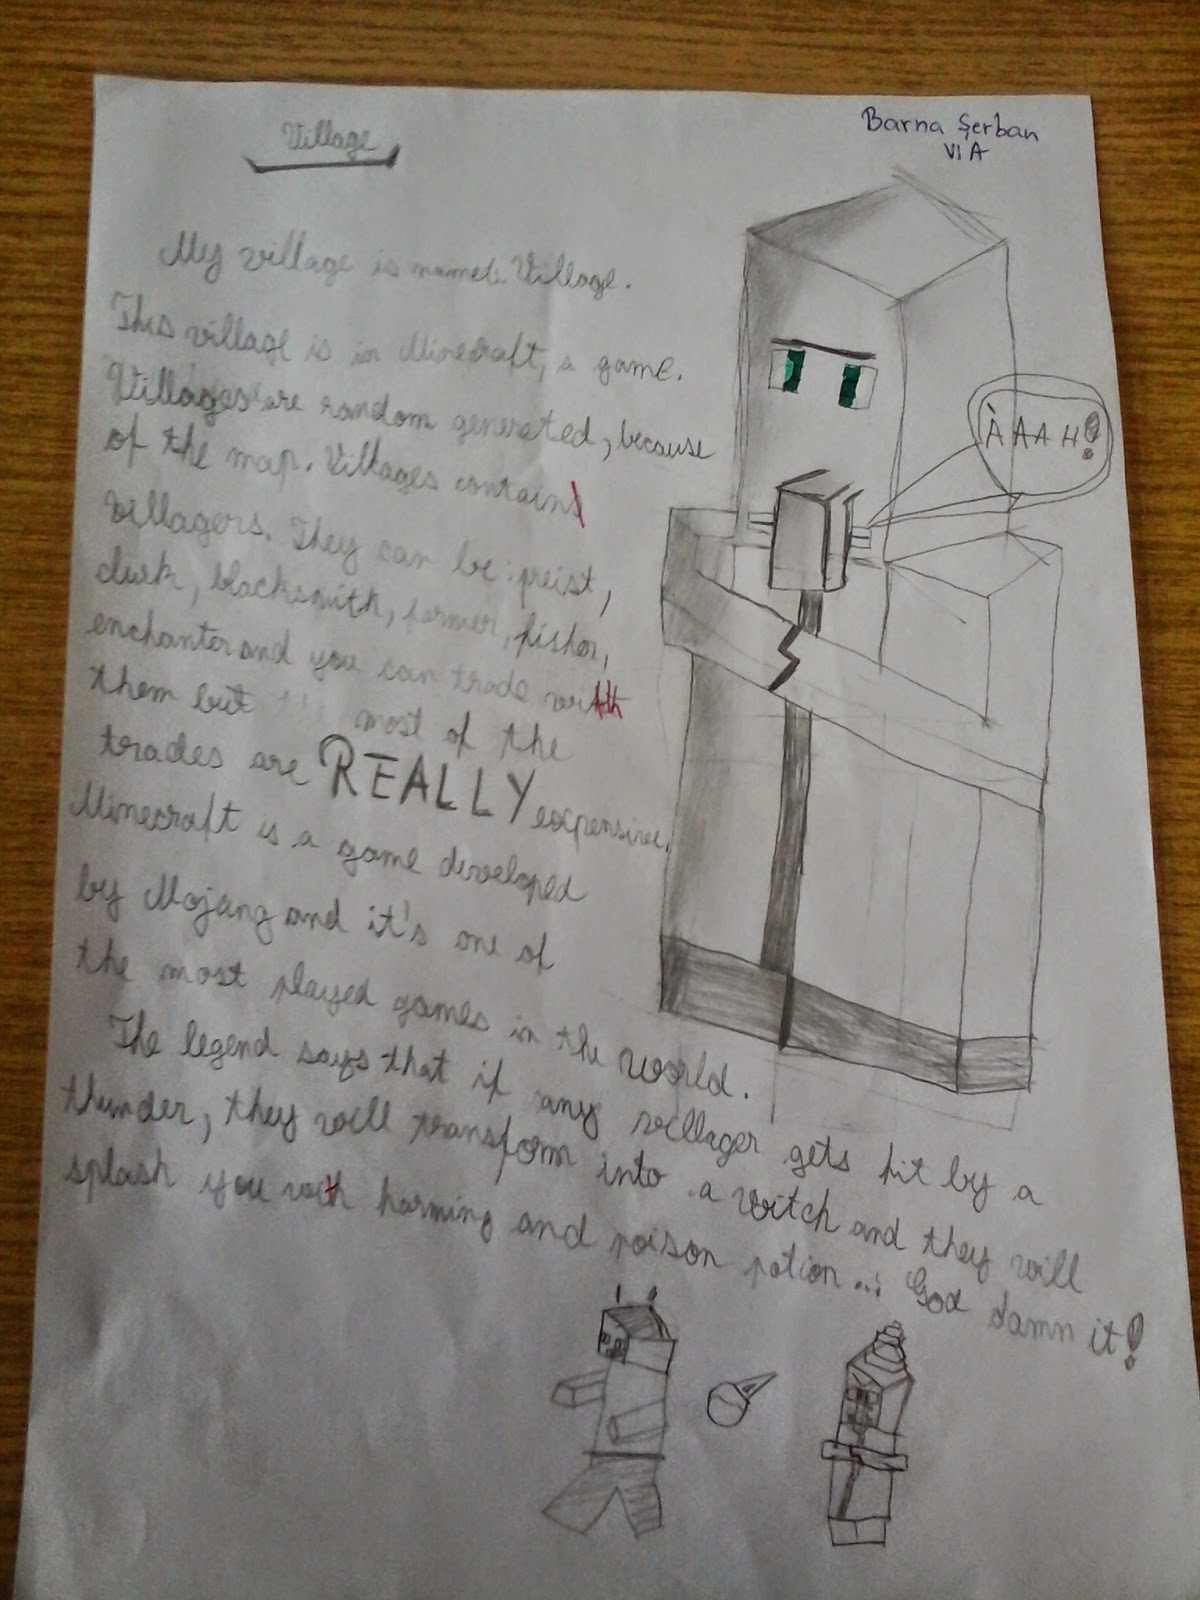 Village
Barna Şerban
VI A
My village is named: Village.
This village is in Minecraft, a game.
Villages are random generated, because
of the map. Villages contain
ÀAAH!
villagers. They can be: preist,
clerk, blacksmith, farmer, fisher,
enchanter and you can trade with
them but most of the
trades are REALLY expensive.
Minecraft is a game developed
by Mojang and it's one of
the most played games in the world.
The legend says that if any villager gets hit by a
thunder, they will transform into a witch and they will
splash you with harming and poison potion... God damn it!